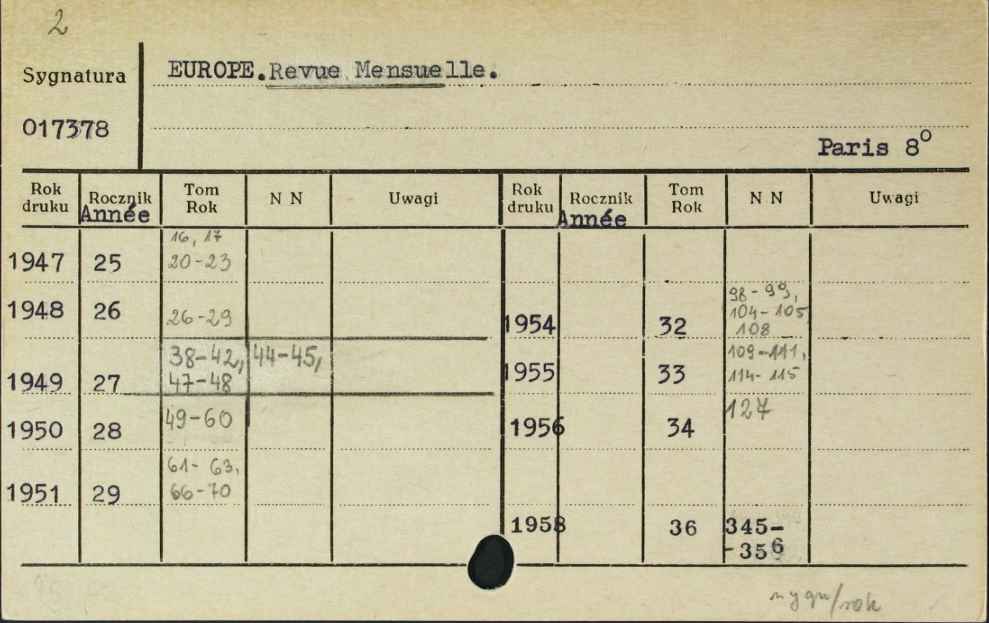 2
Sygnatura EUROPE. Revue Mensuelle.
017378
Paris 8°
Rok druku Rocznik Tom Rok N N Uwagi Rok druku Rocznik Tom Rok N N Uwagi
Année Année
16, 17
1947 25 20-23
1948 26 26-29
38-42, 44-45,
1949 27 47-48
1950 28 49-60
61- 63,
1951 29 66-70
98-99,
104-105
1954 32 108
109-111,
1955 33 114-115
1956 34 127
1958 36 345-
-356
/rok